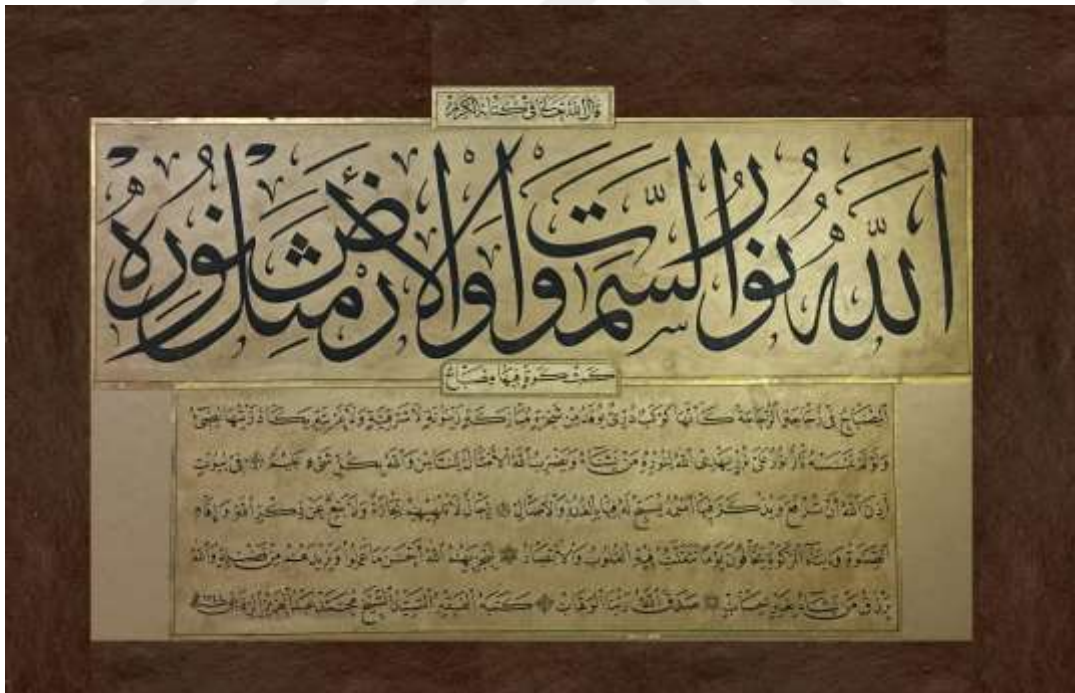 قال الله تعالى في كتابه الكريم
اَللهُ نُورُ السَّمٰوَاتِ وَالْاَرْضِ مَثَلُ نُورِهِ
كَمِشْكٰوةٍ فِيهَا مِصْبَاحٌ
اَلْمِصْبَاحُ فِى زُجَاجَةٍ اَلزُّجَاجَةُ كَاَنَّهَا كَوْكَبٌ دُرِّىٌّ يُوقَدُ مِنْ شَجَرَةٍ مُبَارَكَةٍ زَيْتُونَةٍ لَا شَرْقِيَّةٍ وَلَا غَرْبِيَّةٍ يَكَادُ زَيْتُهَا يُضِىءُ
وَلَوْ لَمْ تَمْسَسْهُ نَارٌ نُورٌ عَلٰى نُورٍ يَهْدِى اللهُ لِنُورِهِ مَنْ يَشَاءُ وَيَضْرِبُ اللهُ الْاَمْثَالَ لِلنَّاسِ وَاللهُ بِكُلِّ شَىْءٍ عَلِيمٌ فِى بُيُوتٍ
اَذِنَ اللهُ اَنْ تُرْفَعَ وَيُذْكَرَ فِيهَا اسْمُهُ يُسَبِّحُ لَهُ فِيهَا بِالْغُدُوِّ وَالْاٰصَالِ رِجَالٌ لَا تُلْهِيهِمْ تِجَارَةٌ وَلَا بَيْعٌ عَنْ ذِكْرِ اللهِ وَاِقَامِ
الصَّلٰوةِ وَاِيتَاءِ الزَّكٰوةِ يَخَافُونَ يَوْمًا تَتَقَلَّبُ فِيهِ الْقُلُوبُ وَالْاَبْصَارُ لِيَجْزِيَهُمُ اللهُ اَحْسَنَ مَا عَمِلُوا وَيَزِيدَهُمْ مِنْ فَضْلِهِ وَاللهُ
يَرْزُقُ مَنْ يَشَاءُ بِغَيْرِ حِسَابٍ صَدَقَ اللهُ رَبُّنَا الْوَهَّابُ كَتَبَهُ الْفَقِيرُ السَّيِّدُ الشَّيْخُ مُحَمَّدْ عَبْدُ الْعَزِيزِ الرِّفَاعِى